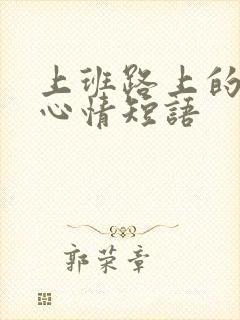 上班路上的
心情短語
郭荣章